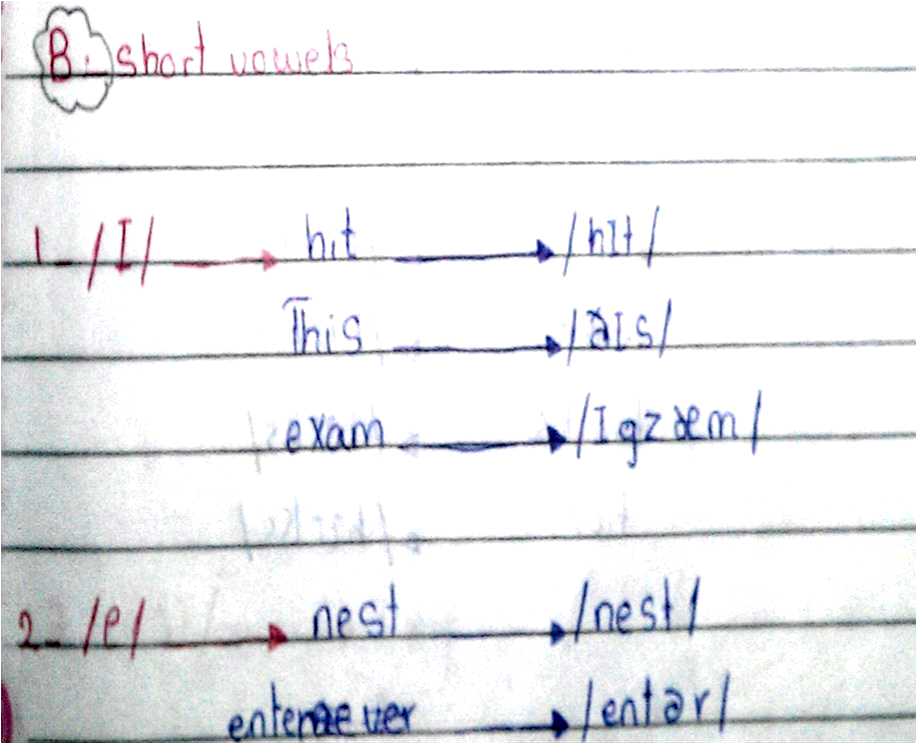 B. short vowels
1_ /I/ → hit → /hIt/
This → /ðIs/
exam → /Igzæm/
2_ /e/ → nest → /nest/
→ /entər/